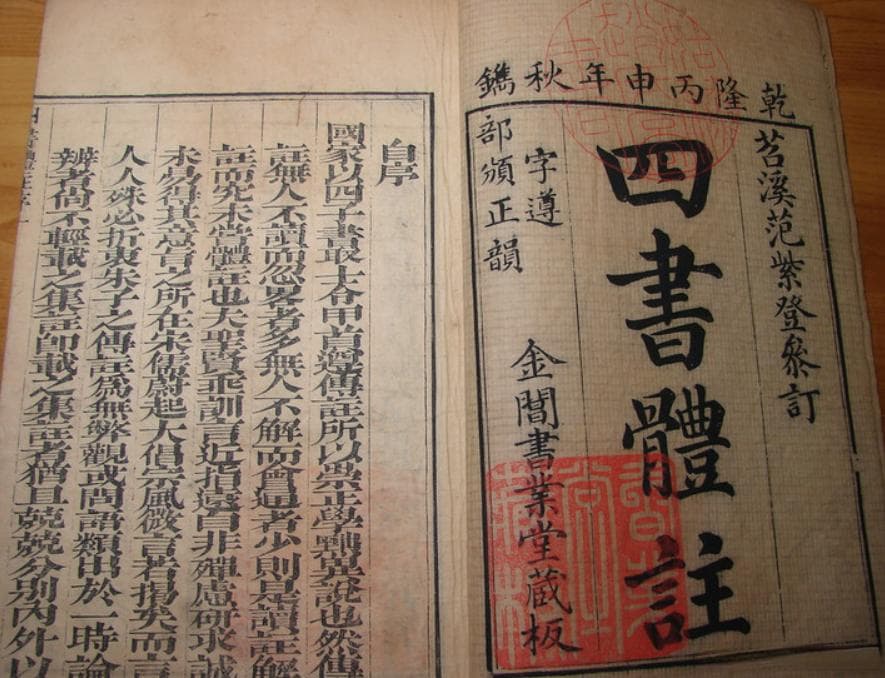 乾隆丙申年秋鐫
苕溪范紫登參訂
四書體註
字遵
部頒正韻
金閶書業堂藏板
自序
國家以四子書取士令甲首遵傳註所以崇正學黜異說也然傳
註無人不讀而忽畧者多無人不解而會通者少則是讀註解
註而究未嘗體註也夫聖賢垂訓言近指遠自非殫慮研求誠
未易得其意旨之所在宋儒蔚起大倡宗風微言若揭矣而言
人人殊必折衷朱子之傳註爲無弊觀或問語類出於一時論
辨者尚不輕載之集註即載之集註者猶且兢兢分別內外以